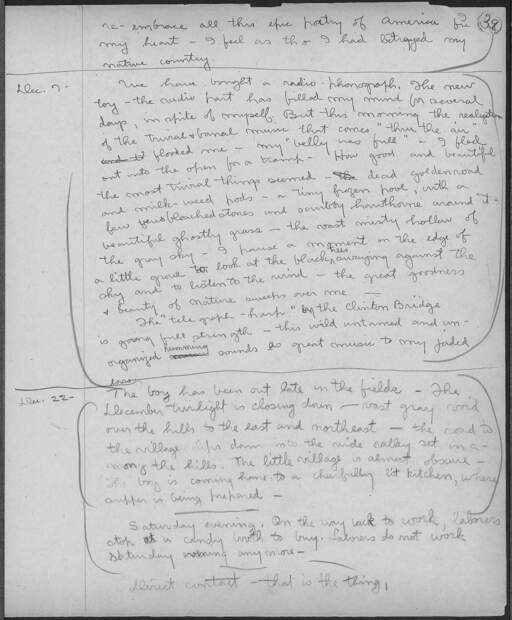 re-embrace all this epic poetry of America for (39)
my heart - I feel as tho I had betrayed my
native country
Dec. 9- We have bought a radio-phonograph. The new
toy - the radio part has filled my mind for several
days, in spite of myself. But this morning the realization
of the trivial & banal music that comes "thru the air"
flooded me - my "belly was full" - I fled
out into the open for a tramp - How good and beautiful
the most trivial things seemed - dead goldenrod
and milk-weed pods - a tiny frozen pool, with a
few bleached stones and scrubby hawthorne around it -
beautiful ghostly grass - the vast misty hollow of
the gray sky - I pause a moment on the edge of
a little grove to look at the black trees swaying against the
sky and to listen to the wind - the great goodness
& beauty of nature sweeps over me -
The "telegraph-harp" by the Clinton Bridge
is going full strength - this wild untamed and un-
organized humming sounds as great music to my jaded
ears.
Dec. 22- The boy has been out late in the fields - The
December twilight is closing down - vast gray void
over the hills to the east and northeast - the road to
the village dips down into the wide valley set in a-
mong the hills. The little village is almost obscure -
The boy is coming home to a cheerfully lit kitchen, where
supper is being prepared -
Saturday evening. On the way back to work, laborers
stop at a candy booth to buy. Laborers do not work
Saturday evening anymore -
direct contact - that is the thing,